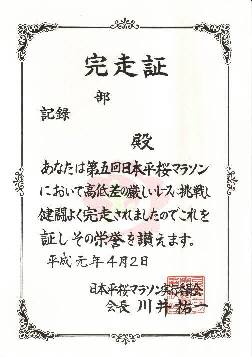 完走証
部
記録
殿
あなたは第五回日本平桜マラソン
において高低差の厳しいレースに挑戦し
健闘よく完走されましたのでこれを
証しその栄誉を讃えます。
平成元年4月2日
日本平桜マラソン実行委員会
会長 川井祐一